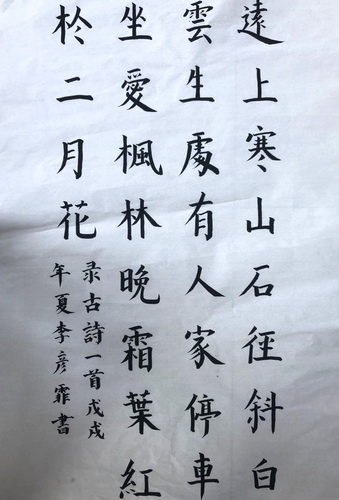 遠上寒山石徑斜白
雲生處有人家停車
坐愛楓林晚霜葉紅
於二月花
录古詩一首戊戌
年夏李彦霏書